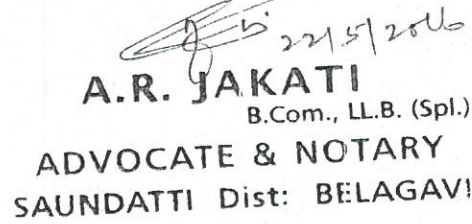 22/5/2016
A.R. JAKATI
B.Com., LL.B. (Spl.)
ADVOCATE & NOTARY
SAUNDATTI Dist: BELAGAVI